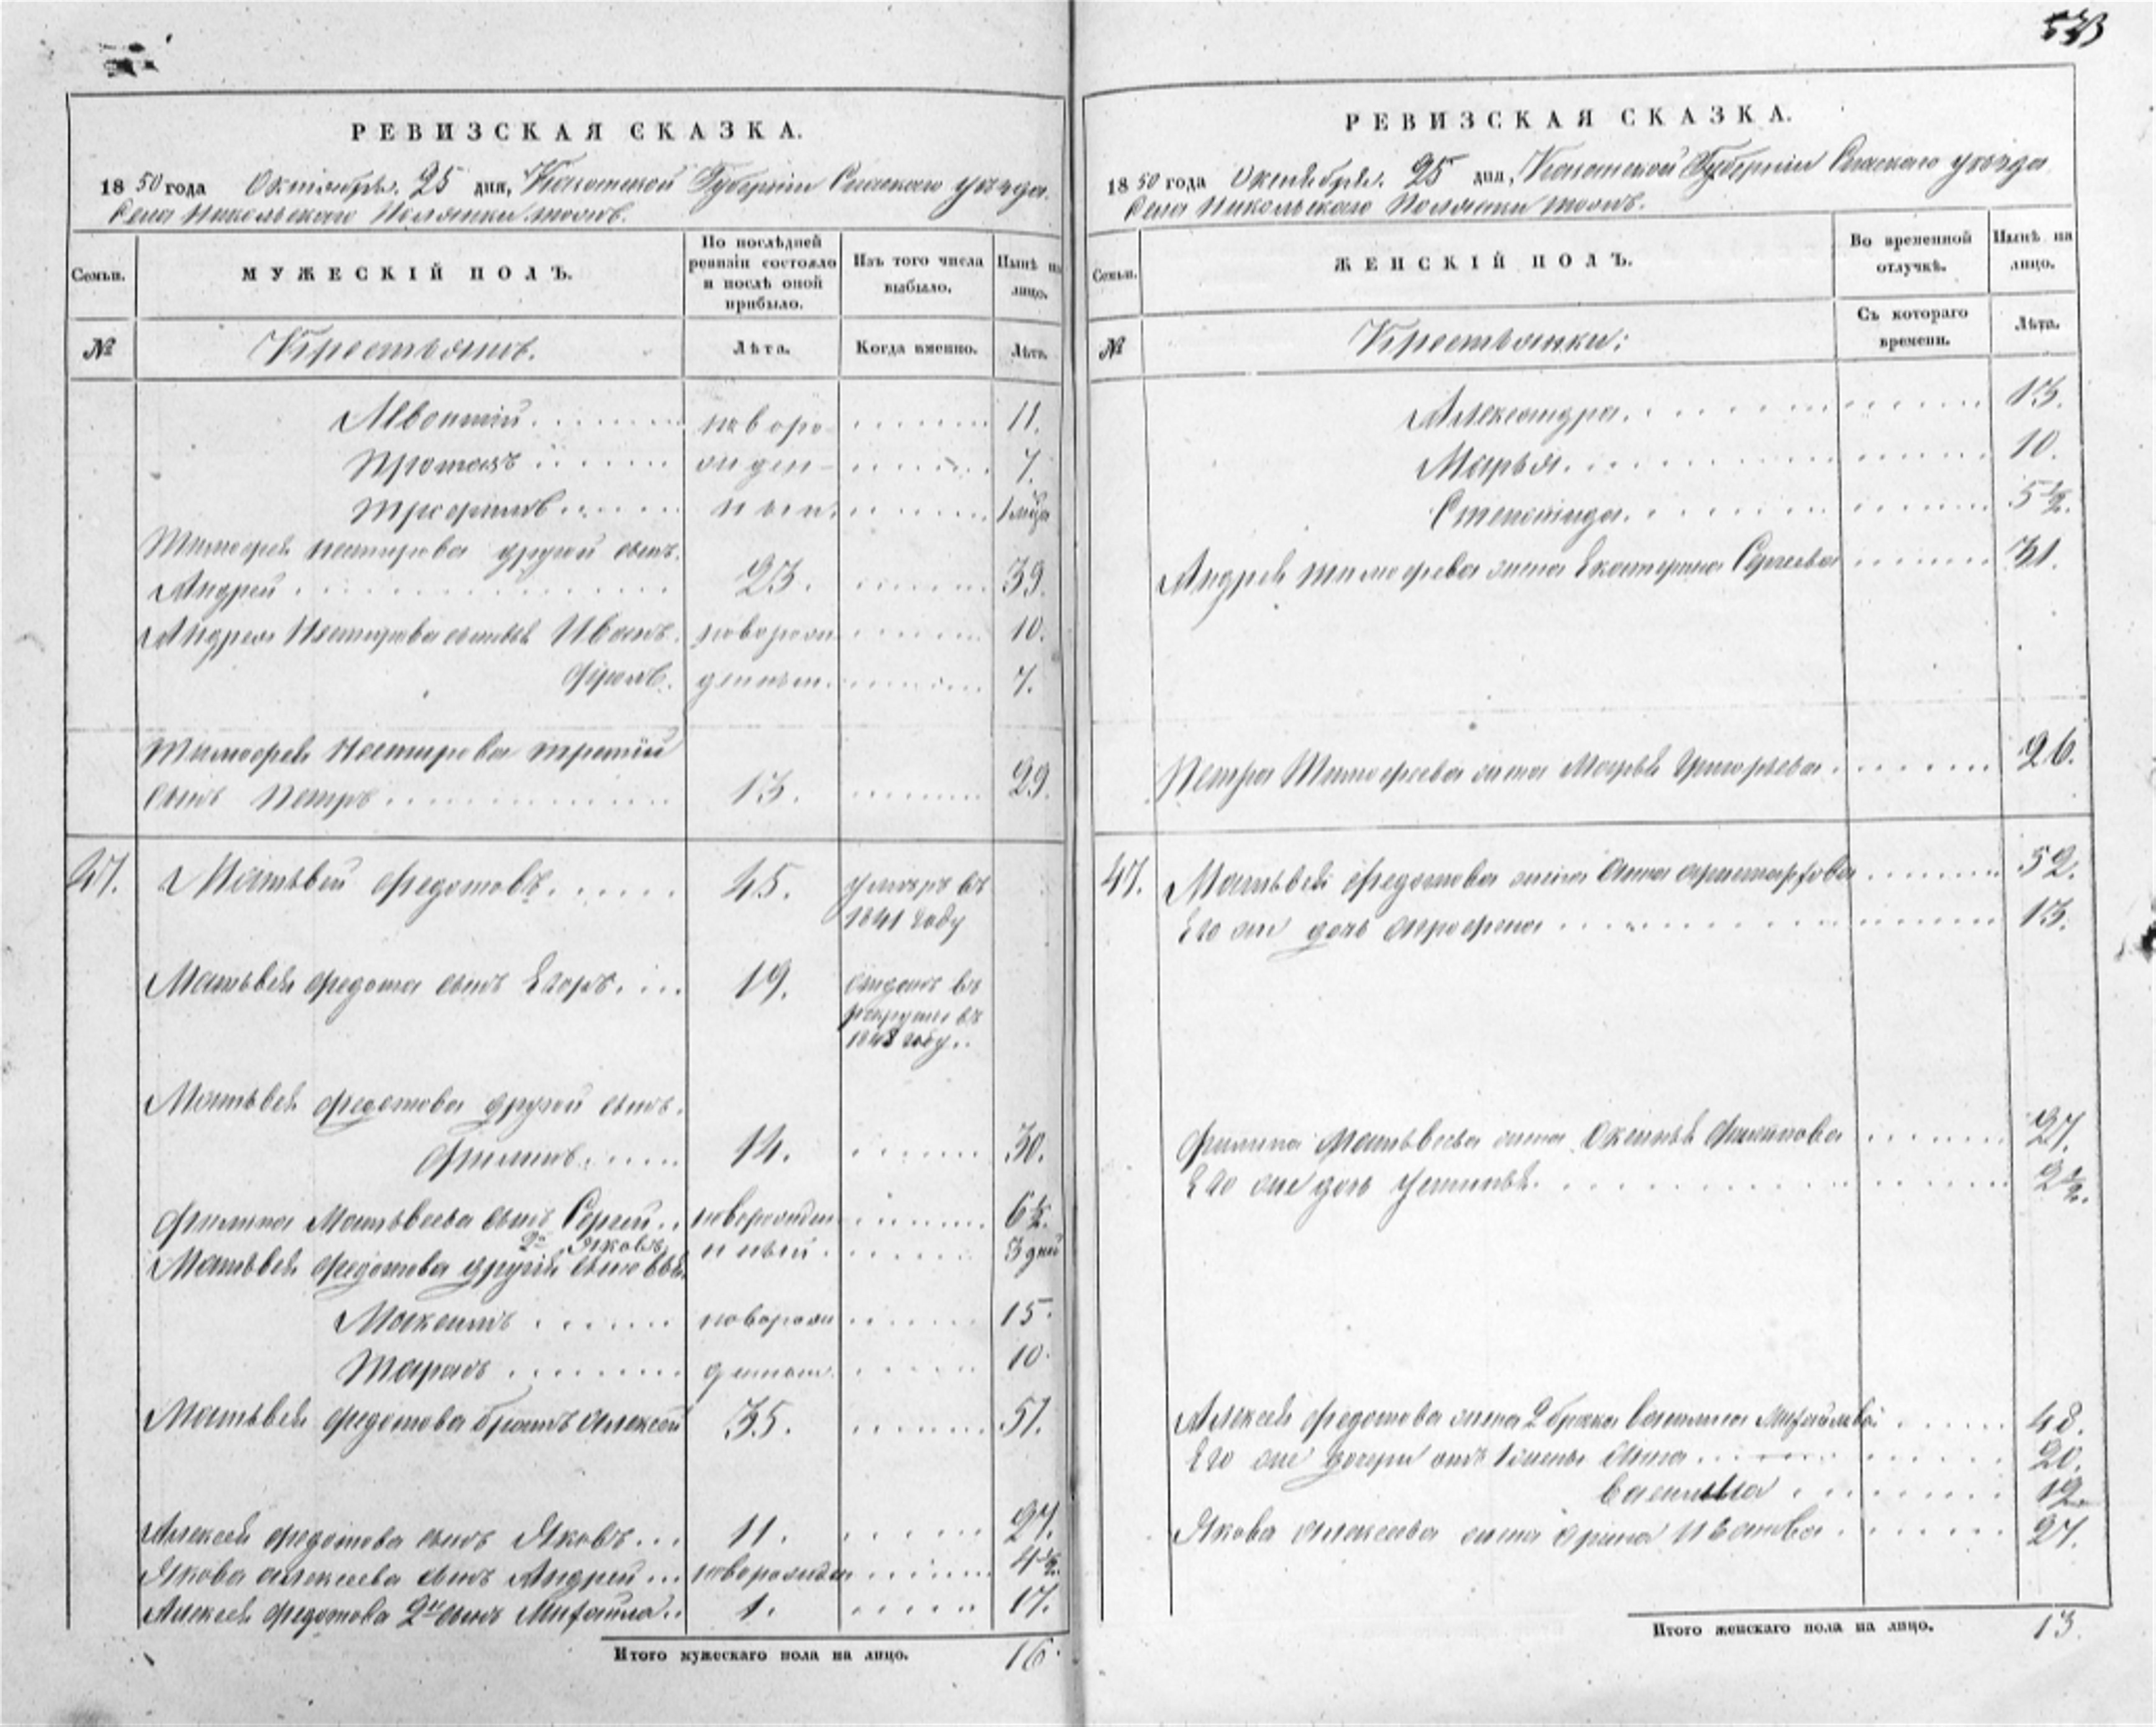 533
РЕВИЗСКАЯ СКАЗКА.
1850 года Октября 25 дня, Казанской Губерніи Спаскаго уѣзда.
Села Никольскаго Полянки тожъ.
Семьи. МУЖЕСКІЙ ПОЛЪ. По послѣдней ревизіи состояло и послѣ оной прибыло. Изъ того числа выбыло. Нынѣ на лицо.
№ Крестьянъ. Лѣта. Когда именно. Лѣта.
Левонтій новоро- 11.
Протасъ жден- 7.
Трофимъ ныи.
Тимофея Нестирова другой сынъ
Андрей 23. 39.
Андрея Нестирова сыновья Иванъ новорож 10.
Фролъ. денныи. 7.
Тимофея Нестирова третій
сынъ Петръ 13. 29.
47. Матвей Федотовъ 45. умеръ въ
1841 году
Матьвея Федота сынъ Егоръ 19. отданъ въ
рекруты въ
1848 году
Матьвея Федотова другой сынъ.
Филипъ 14. 30.
Филипа Матьвеева сынъ Сергей новорожден 6½.
2й Яковъ ныи 3 дней
Матьвея Федотова другія сыновья
Максимъ новорож 15.
Тарасъ денныи 10.
Матьвея Федотова братъ Алексей 35. 51.
Алексея Федотова сынъ Яковъ 11. 27.
Якова Алексеева сынъ Андрей новорожден 4½.
Алексея Федотова 2й сынъ Михайла 1. 17.
Итого мужескаго пола на лицо. 16.
РЕВИЗСКАЯ СКАЗКА.
1850 года Октября 25 дня, Казанской Губерніи Спаскаго уѣзда
Села Никольскаго Полянки тожъ.
Семьи. ЖЕНСКІЙ ПОЛЪ. Во временной отлучкѣ. Нынѣ на лицо.
№ Крестьянки: Съ котораго времени. Лѣта.
Александра 13.
Марья 10.
Степанида 5½.
Андрея Тимофева жена Екатерина Сергеева 31.
Петра Тимофеева жена Марья Григорьева 26.
47. Матьвея Федотова жена Анна 52.
Его же дочь Апрофена 13.
Филипа Матьвеева жена Оксинья Филипова 27.
Его же дочь Устинья 2½.
Алексея Федотова жена 2 брака Василиса Михайлова 48.
Его же дочери отъ 1 жены Анна 20.
Василиса 12.
Якова Алексеева жена Арина Иванова 27.
Итого женскаго пола на лицо. 13.